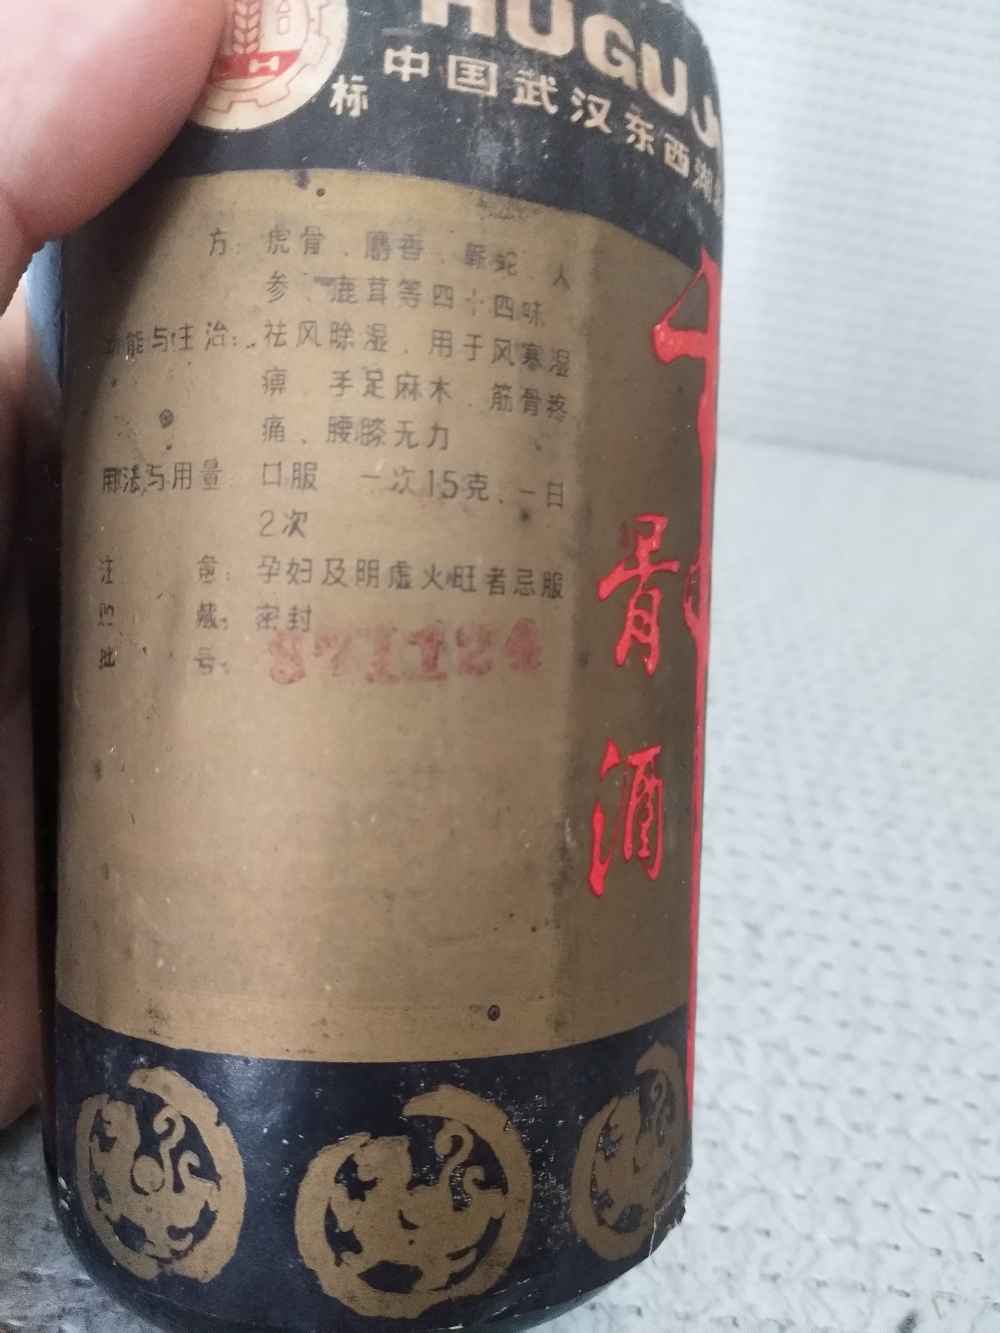 HUGUJ
标
中国武汉东西湖
方：虎骨、麝香、蕲蛇、人
参、鹿茸等四十四味
功能与主治：祛风除湿，用于风寒湿
痹 手足麻木．筋骨疼
痛、腰膝无力
用法与用量：口服 一次15克、一日
2次
注 意：孕妇及阴虚火旺者忌服
贮 藏：密封
批 号：871124
骨酒